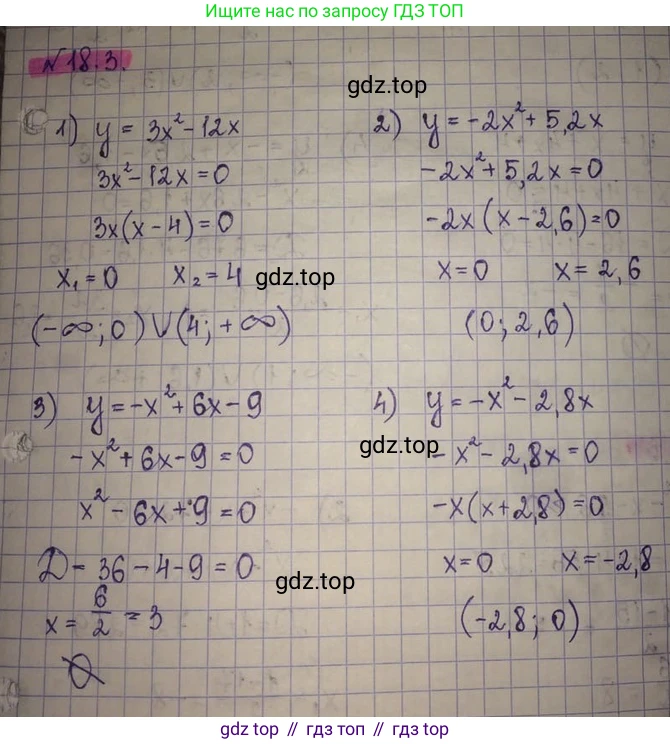 Ищите нас по запросу ГДЗ ТОП
№18.3.
gdz.top
1) y = 3x²-12x
3x²-12x=0
3x(x-4)=0
x₁=0 x₂=4
gdz.top
(-∞;0)∪(4;+∞)
2) y=-2x²+5,2x
-2x²+5,2x=0
-2x(x-2,6)=0
x=0 x=2,6
(0;2,6)
3) y=-x²+6x-9
-x²+6x-9=0
x²-6x+9=0
D=36-4-9=0
x=6/2=3
∅
4) y=-x²-2,8x
gdz.top
-x²-2,8x=0
-x(x+2,8)=0
x=0 x=-2,8
gdz.top
(-2,8;0)
gdz.top // гдз топ // гдз.top